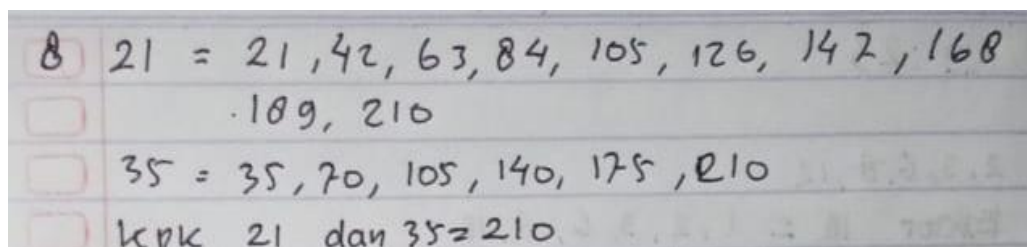 8 21 = 21, 42, 63, 84, 105, 126, 142, 168
189, 210
35 = 35, 70, 105, 140, 175, 210
KPK 21 dan 35 = 210